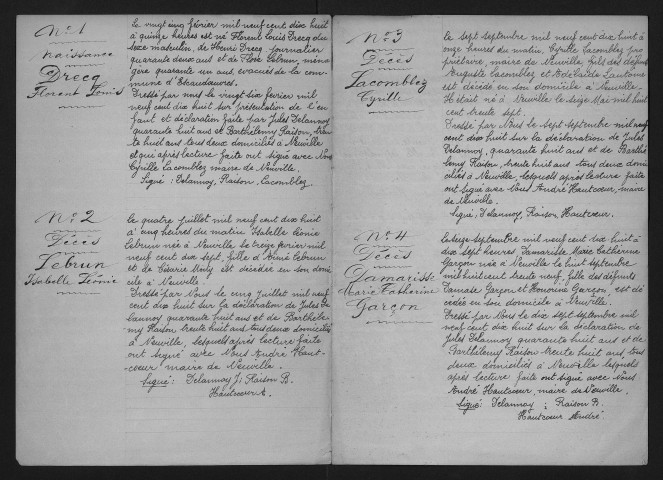 No 1
Naissance
Drecq
Florent Louis
Le vingt cinq février mil neuf cent dix huit
à quinze heures est né Florent Louis Drecq du
sexe masculin, de Henri Drecq journalier
quarante deux ans et de Flore Lebrun, ména
gère quarante un ans, évacués de la com-
mune d'Escaudoeuvres.
Dressé par nous le vingt six février mil
neuf cent dix huit sur présentation de l'en
fant et déclaration faite par Jules Delannoy
quarante huit ans et Barthélemy Raison, tren
te huit ans tous deux domiciliés à Neuville
et qui après lecture faite ont signé avec Nous
Cyrille Lacomblez maire de Neuville.
Signé : Delannoy, Raison, Lacomblez.
No 2
Décès
Lebrun
Isabelle Léonie
Le quatre juillet mil neuf cent dix huit
à cinq heures du matin Isabelle Léonie
Lebrun née à Neuville le treize février mil
neuf cent dix sept, fille d'Aimé Lebrun
et de Marly est décédée en son domi
cile à Neuville.
Dressé par Nous le cinq juillet mil neuf
cent dix huit sur la déclaration de Jules De
lannoy quarante huit ans et de Barthéle
my Raison trente huit ans tous deux domiciliés
à Neuville, lesquels après lecture faite
ont signé avec Nous André Haut-
coeur maire de Neuville.
Signé : Delannoy J, Raison B.
Hautcoeur A.
No 3
Décès
Lacomblez
Cyrille
Le sept septembre mil neuf cent dix huit à
onze heures du matin, Cyrille Lacomblez pro
priétaire, maire de Neuville, fils des défunts
Auguste Lacomblez et Adélaïde
est décédé en son domicile à Neuville.
Il était né à Neuville le seize Mai mil huit
cent trente sept.
Dressé par Nous le sept septembre mil neuf
cent dix huit sur la déclaration de Jules
Delannoy, quarante huit ans et de Barthé
lemy Raison, trente huit ans tous deux domi
ciliés à Neuville, lesquels après lecture faite
ont signé avec Nous André Hautcoeur, maire
de Neuville.
Signé, Delannoy, Raison Hautcoeur.
No 4
Décès
Damariss:
Marie Catherine
Garçon
Le seize septembre mil neuf cent dix huit à
dix sept heures Damarisse Marie Catherine
Garçon née à Neuville le huit septembre
mil huit cent trente neuf, fille des défunts
Damase Garçon et Honorine Garçon, est dé
cédée en son domicile à Neuville.
Dressé par Nous le dix sept septembre mil
neuf cent dix huit sur la déclaration de
Jules Delannoy quarante huit ans et de
Barthélemy Raison trente huit ans, tous
deux domiciliés à Neuville lesquels
après lecture faite ont signé avec Nous
André Hautcoeur, maire de Neuville.
Signé : Delannoy ; Raison B.
Hautcoeur André